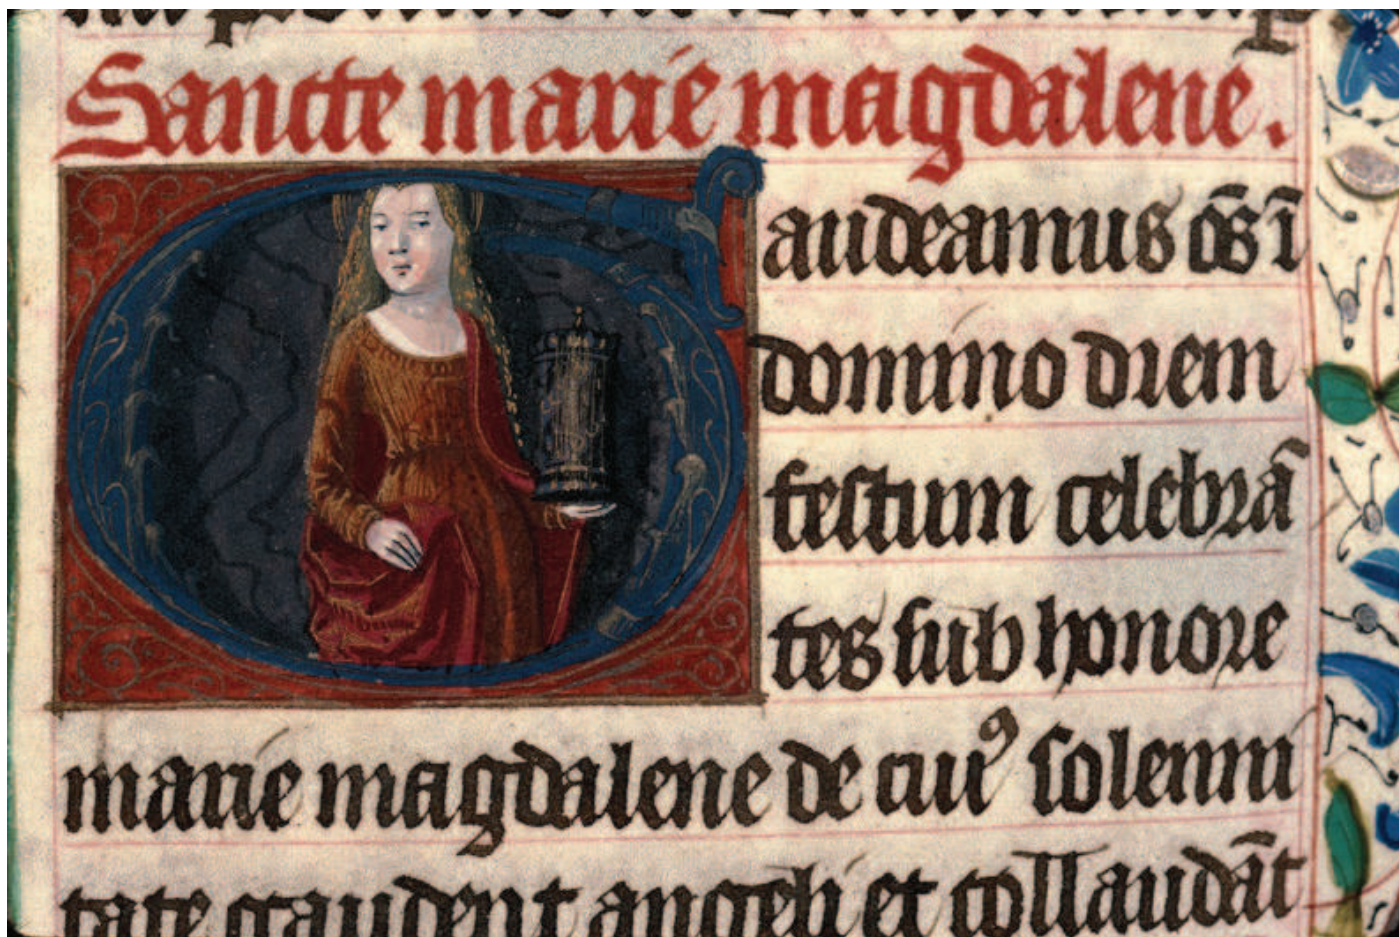 Sancte marie magdalene.
Gaudeamus õs ĩ
domino diem
festum celebrã
tes sub honore
marie magdalene de cuiꝰ solenni
tate gaudent angeli et collaudãt